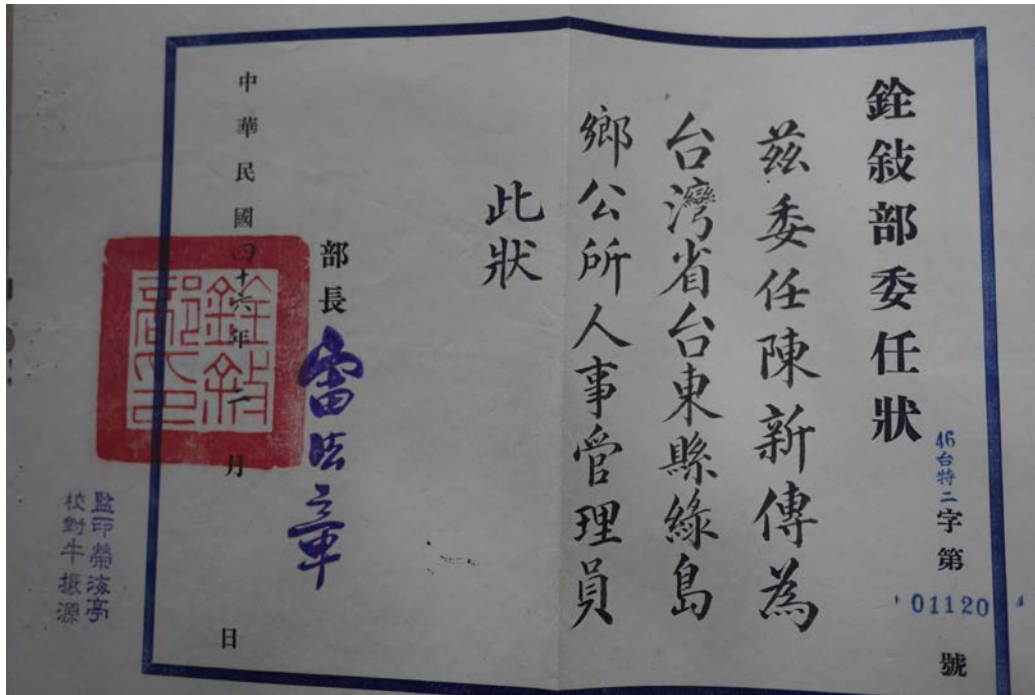 銓敍部委任狀
46台特二字第01120號
茲委任陳新傳為
台灣省台東縣綠島
鄉公所人事管理員
此狀
部長雷法章
中華民國四十六年二月 日
銓敍部印
監印榮海亭
校對牛振源